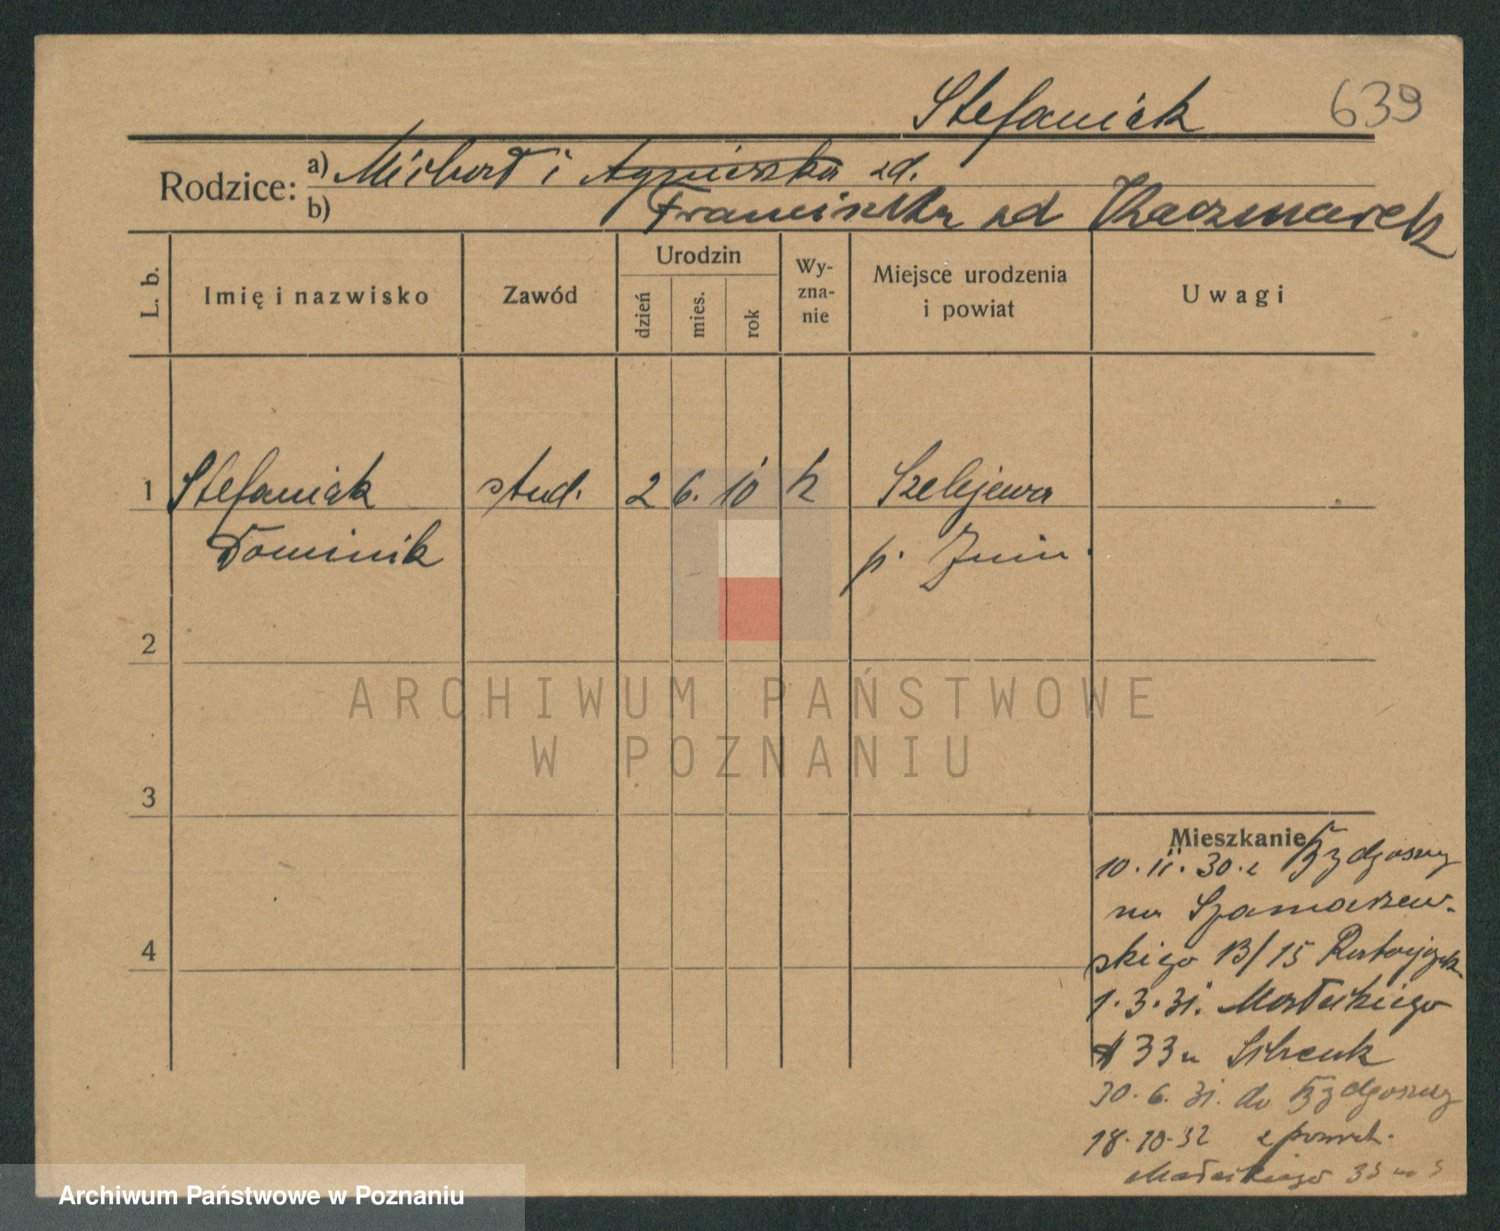 Stefaniak 639
Rodzice: a) Michał i Agnieszka zd.
b) Franciszka zd Kaczmarek
L. b.
Imię i nazwisko
Zawód
Urodzin
dzień
mies.
rok
Wy-
zna-
nie
Miejsce urodzenia
i powiat
Uwagi
1 Stefaniak stud. 2 6. 10 k Szelejewa
Dominik p. Żnin
2
ARCHIWUM PAŃSTWOWE
W POZNANIU
3
Mieszkanie
10. 11. 30. z Bydgoszczy
na Szamarzew-
skiego 13/15 Ratajczak
1. 3. 31. Małeckiego
33 u
4
30. 6. 31. do Bydgoszczy
18. 10. 32 z powrot.
Małeckiego 33
Archiwum Państwowe w Poznaniu